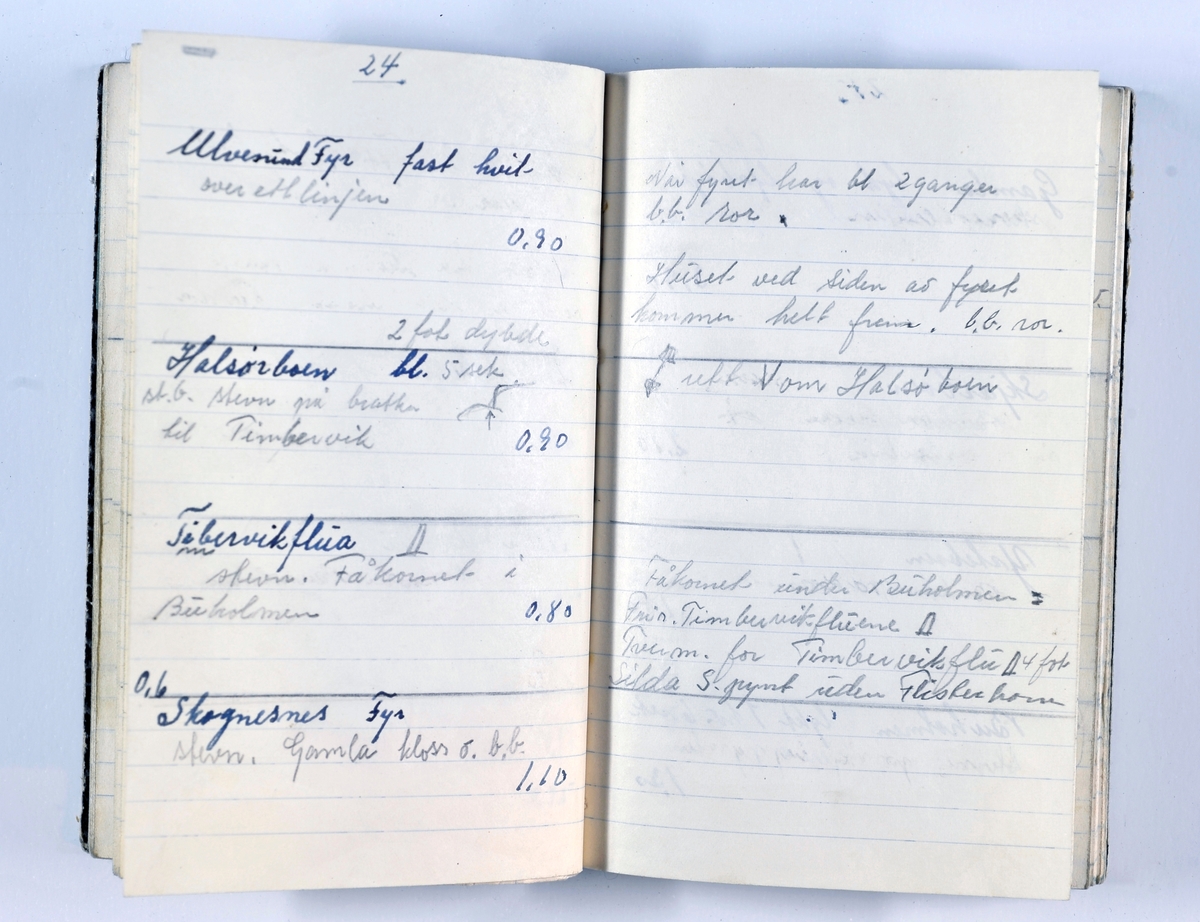 24
Ulvesund Fyr fast hvit
over ett linjen
0,90
2 fot dybde
Halsørboen bl. 5 sek
st.b. stevn på brattu
til Timbervik
0,90
Tibervikflua
stevn. Fåkornet i
Buholmen
0,80
0,6
Skognesnes Fyr
stevn. Gamla kloss o. b.b.
1,10
Når fyret har bl 2 ganger
b.b. ror.
Huset ved siden av fyret
kommer helt frem. b.b. ror.
rett V om Halsø boen
Fåkornet under Buholmen
Timbervikfluene
Tverm. for Timbervikflu 4 fot
Silda S. pynt uden